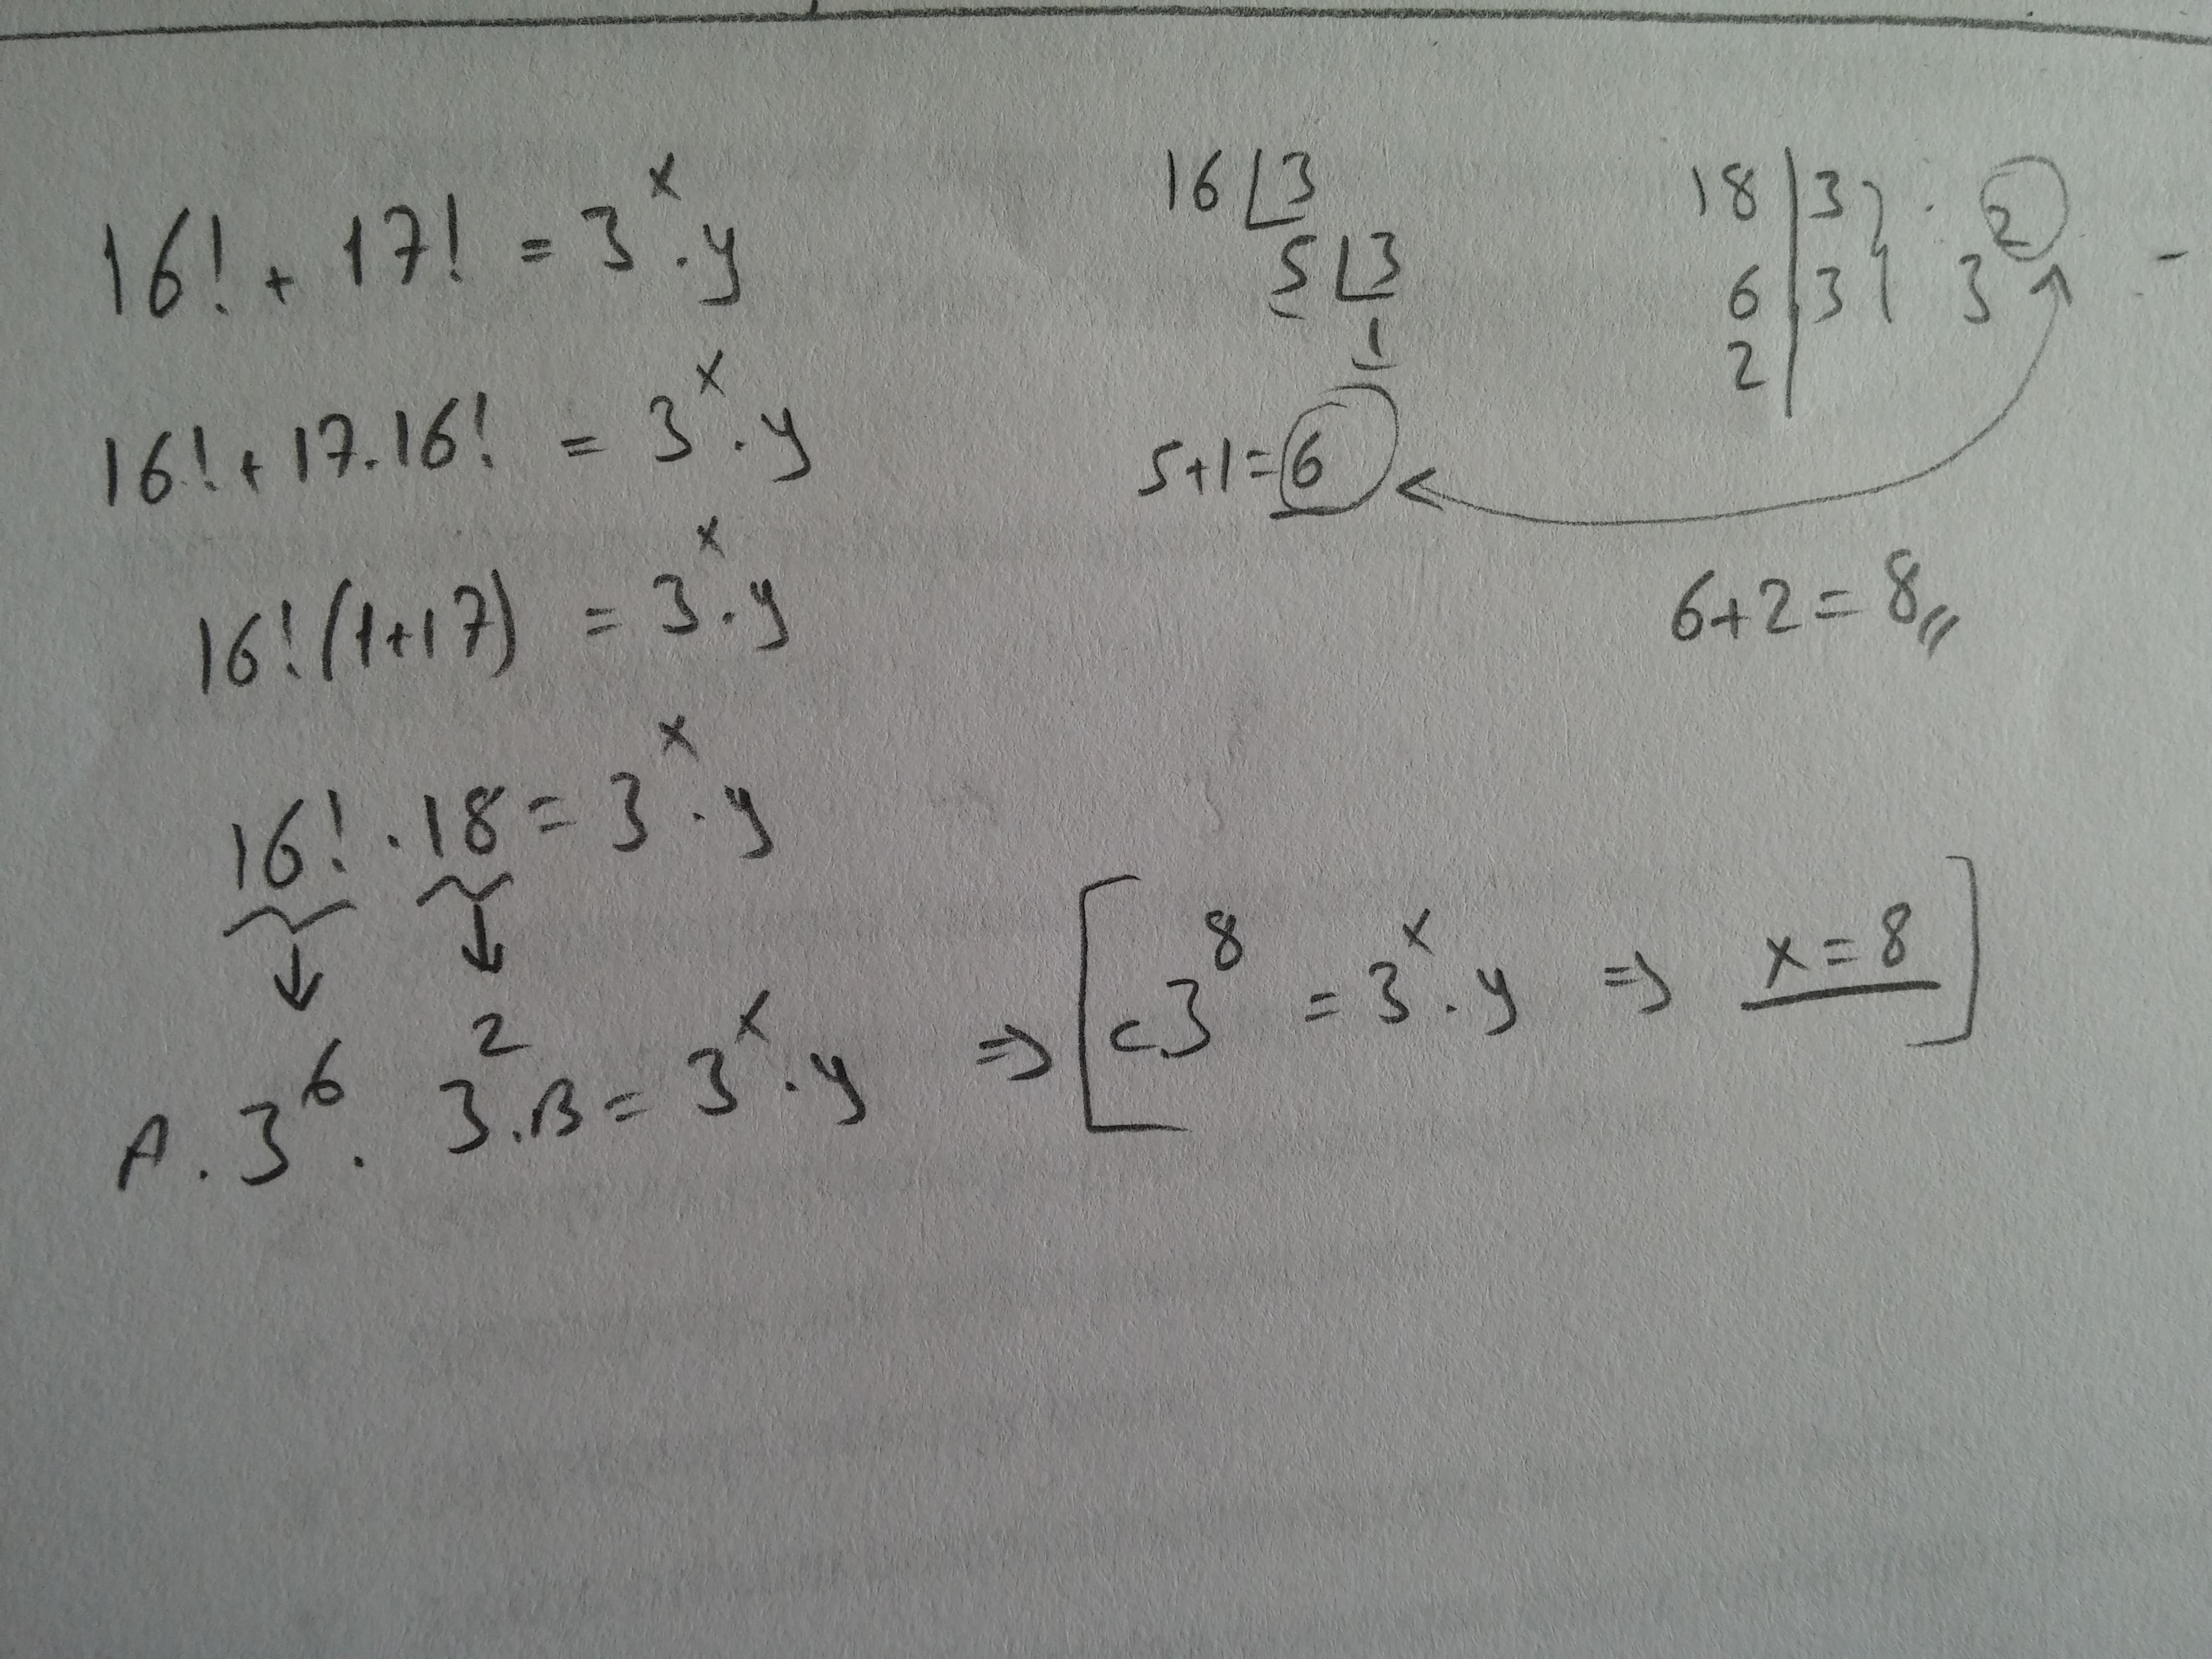 16! + 17! = 3^x . y
16! + 17 . 16! = 3^x . y
16! (1+17) = 3^x . y
16! . 18 = 3^x . y
A . 3^6 . 3^2 . B = 3^x . y ⇒ [ c . 3^8 = 3^x . y ⇒ x = 8 ]
16 | 3
5 | 3
1
5+1=6
18 | 3
6 | 3
2
3^2
6+2=8